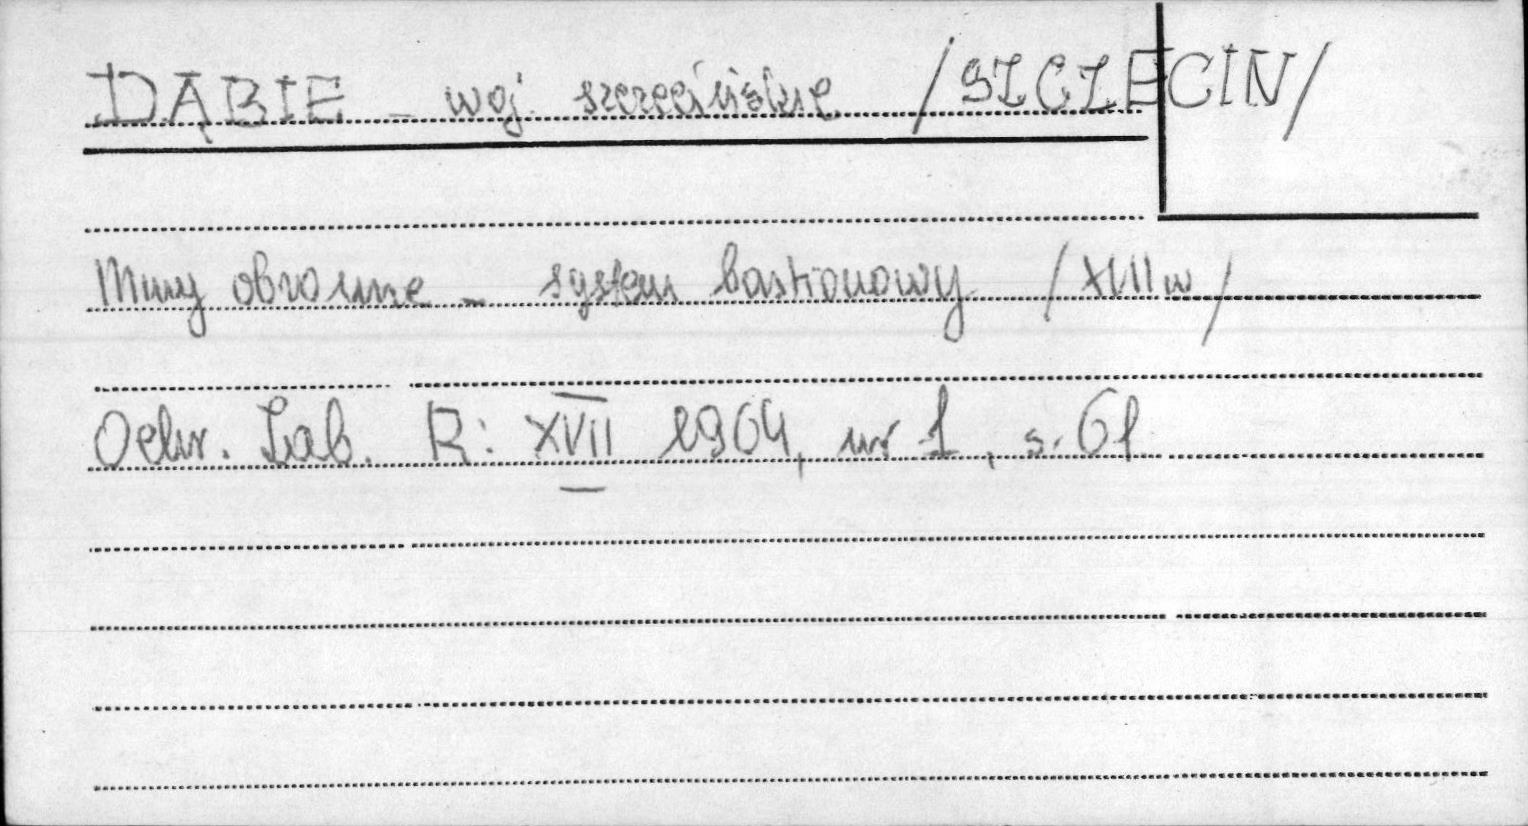 DĄBIE - woj. szczecińskie /SZCZECIN/
Mury obronne - system bastionowy /XVII w/
Ochr. Zab. R: XVII 1964, nr 1, s. 61